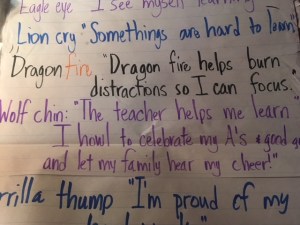 Eagle eye I see myself learning
Lion cry "Somethings are hard to learn
Dragon fire "Dragon fire helps burn
distractions so I can focus."
Wolf chin: "The teacher helps me learn"
I howl to celebrate my A's & good
and let my family hear my cheer!"
rilla thump "I'm proud of my